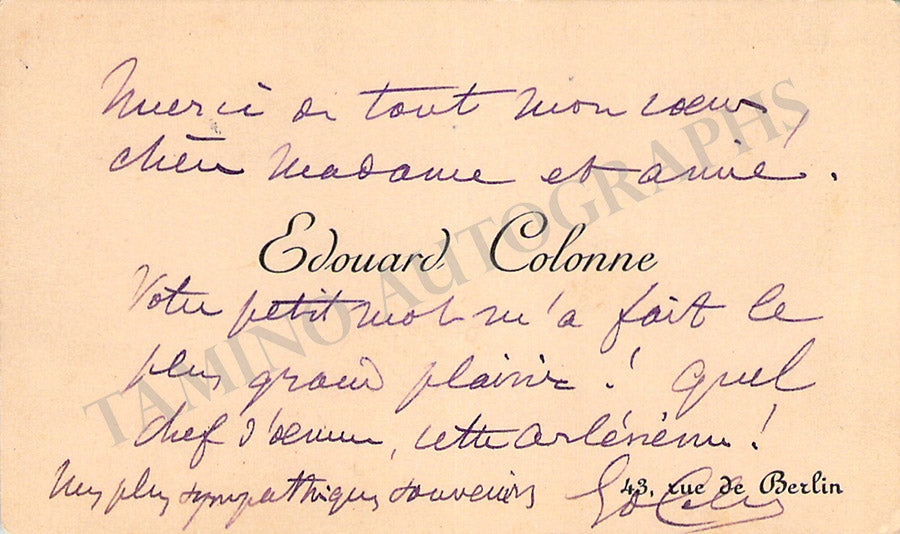 Merci de tout mon cœur
chère Madame et amie.
Edouard Colonne
Votre petit mot m'a fait le
plus grand plaisir ! Quel
chef d'œuvre, cette Arlésienne !
Mes plus sympathiques souvenirs
Ed Colonne
43, rue de Berlin
TAMINO AUTOGRAPHS